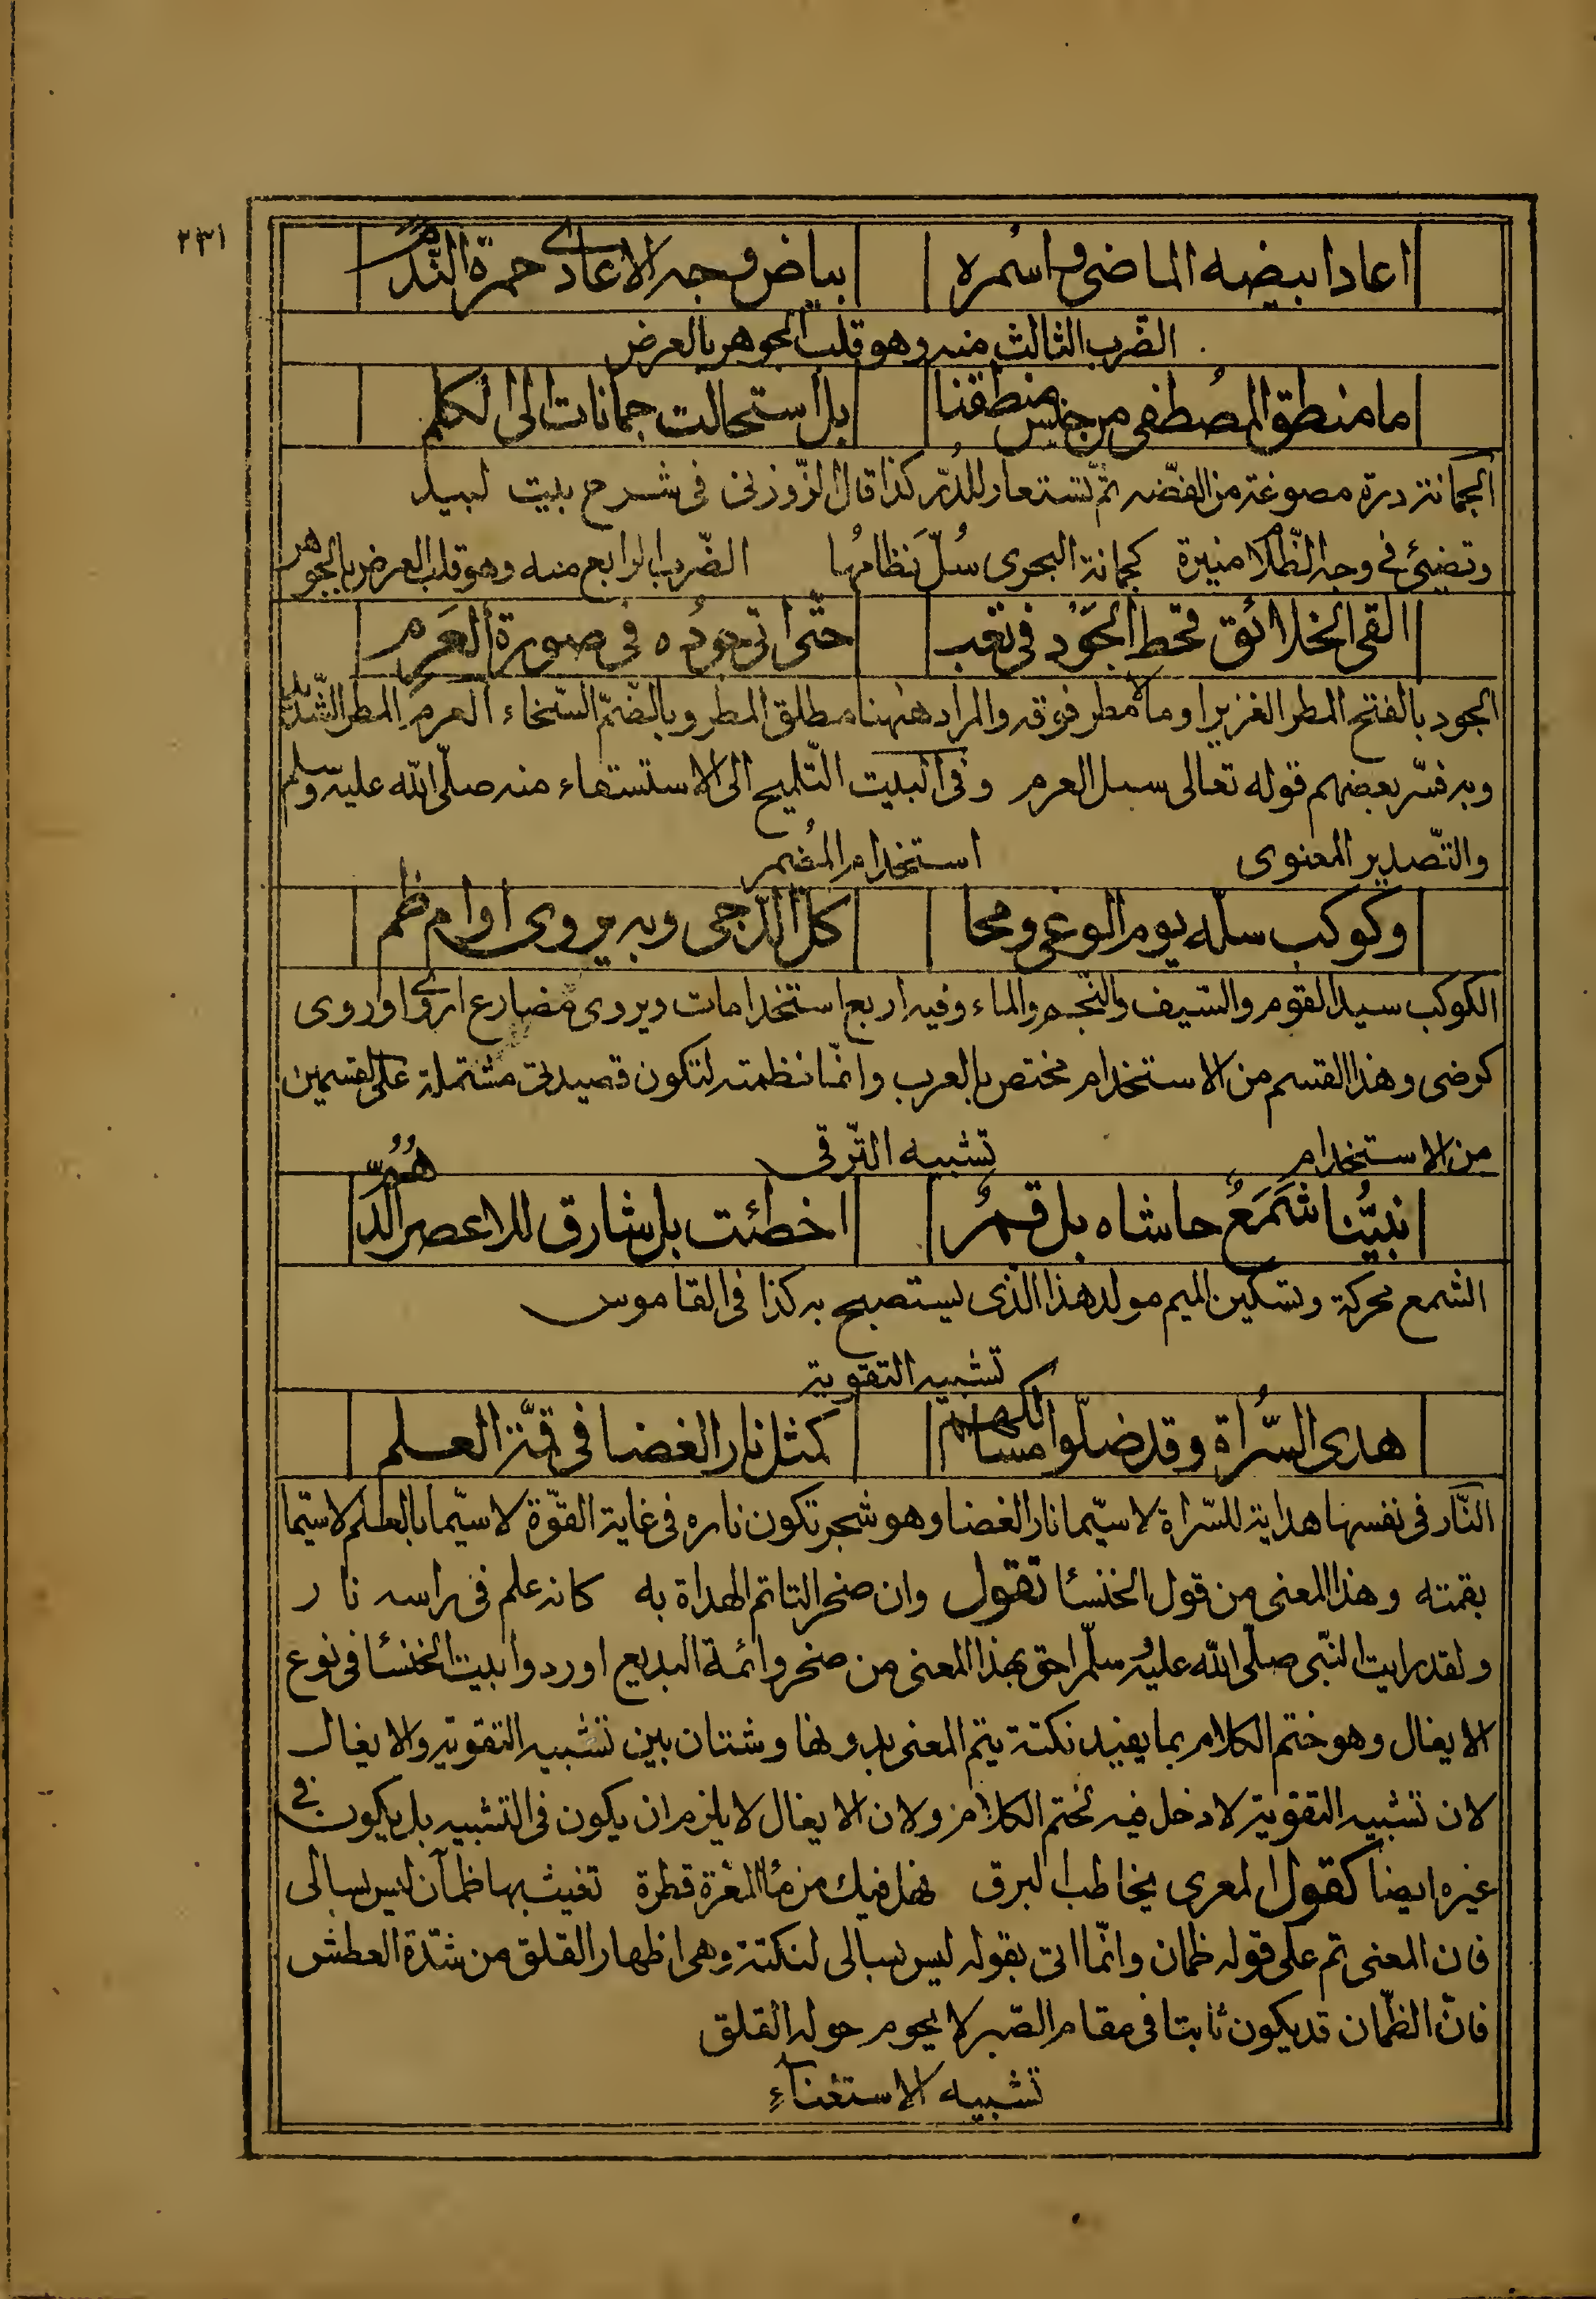 ٢٣١
اعاد ابيضه الماضى واسمره بياض وجه الاعادى حمرة الندم
الضّرب الثالث منه وهو قلب الجوهر بالعرض
ما منطق المصطفى من جنس منطقنا بل استحالت جمانات الى الكلم
الجمانة درة مصوغة من الفضّه ثم تستعار للدّر كذا قال الزّوزنى فى شرح بيت لبيد
وتضئ فى وجه الظّلام منيرة كجمانة البحرى سُلّ نظامها الضّرب الرابع منه وهو قلب العرض بالجوهر
القى الخلائق قحط الجَوْد فى تعب حتّى اتى جُوده فى صورة العَرم
الجود بالفتح المطر الغزير او مالا مطر فوقه والمراد ههنا مطلق المطر وبالضّمّ السّخاء العرم المطر الشّديد
وبه فسّر بعضهم قوله تعالى سيل العرم وفى البيت التّلميح الى الاستسقاء منه صلّى الله عليه وسلم
والتّصدير المعنوى استخدام المُضمر
وكوكب سلّه يوم الوغى ومحا كلّ الدّجى وبه يروى اوام ظم
الكوكب سيد القوم والسّيف والنّجم والماء وفيه اربع استخدامات ويروى مضارع اروى او روى
كرضى وهذا القسم من الاستخدام مختص بالعرب وانّما نظمته لتكون قصيدتى مشتملة على القسمين
من الاستخدام تشبيه التّرقى
نبيُّنا شَمَعٌ حاشاه بل قمرٌ اخطئت بل شارق للاعصر الدُّهُم
الشمع محركة وتسكين الميم مولد هذا الّذى يستصبح به كذا فى القاموس
تشبيه التقوية
هدى السُّراة وقد ضلّوا مسالكهم كمثل نار الغضا فى قمّة العلم
النّار فى نفسها هداية للسّراة لا سيّما نار الغضا وهو شجر تكون ناره فى غاية القوّة لا سيّما بالعلم لا سيّما
بقمته وهذا المعنى من قول الخنسا تقول وان صخرا لتاتم الهداة به كانه علم فى راسه نار
ولقد رايت النّبى صلّى الله عليه وسلّم احق بهذا المعنى من صخر وائمة البديع اوردوا بيت الخنسا فى نوع
الايغال وهو ختم الكلام بما يفيد نكتة يتم المعنى بدونها وشتان بين تشبيه التقوية والايغال
لان تشبيه التقوية لا دخل فيه لختم الكلام ولان الايغال لا يلزم ان يكون فى التشبيه بل يكون فى
غيره ايضا كقول المعرى يخاطب البرق فهل فيك من ماء المعرة قطرة تغيث بها ظمآن ليس بسالى
فان المعنى تم على قوله ظمان وانّما اتى بقوله ليس بسالى لنكتة وهى اظهار القلق من شدّة العطش
فانّ الظّمان قد يكون ثابتا فى مقام الصّبر لا يحوم حوله القلق
تشبيه الاستغناء